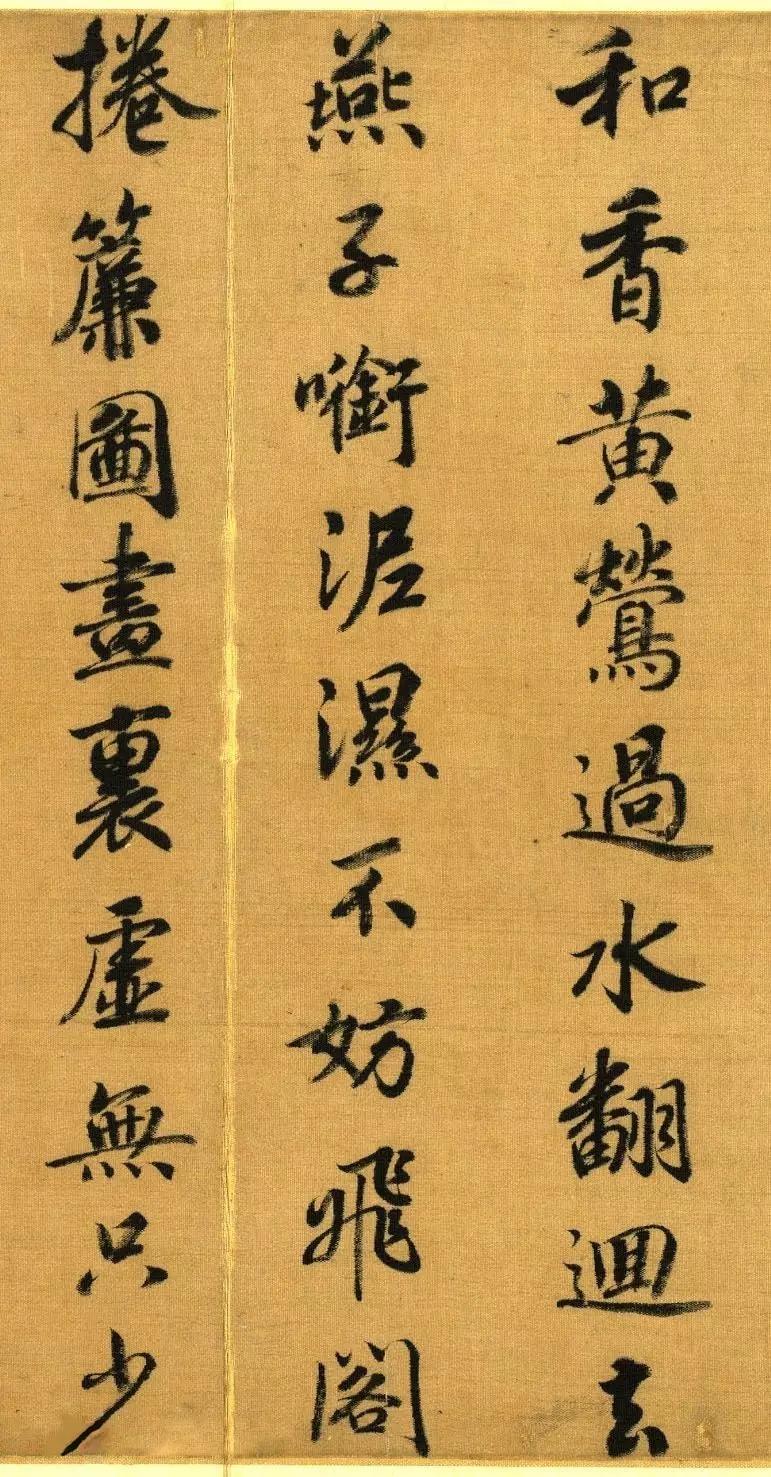 和香黄鶯過水翻迴去
燕子啣泥濕不妨飛閣
捲簾圖畫裏虛無只少